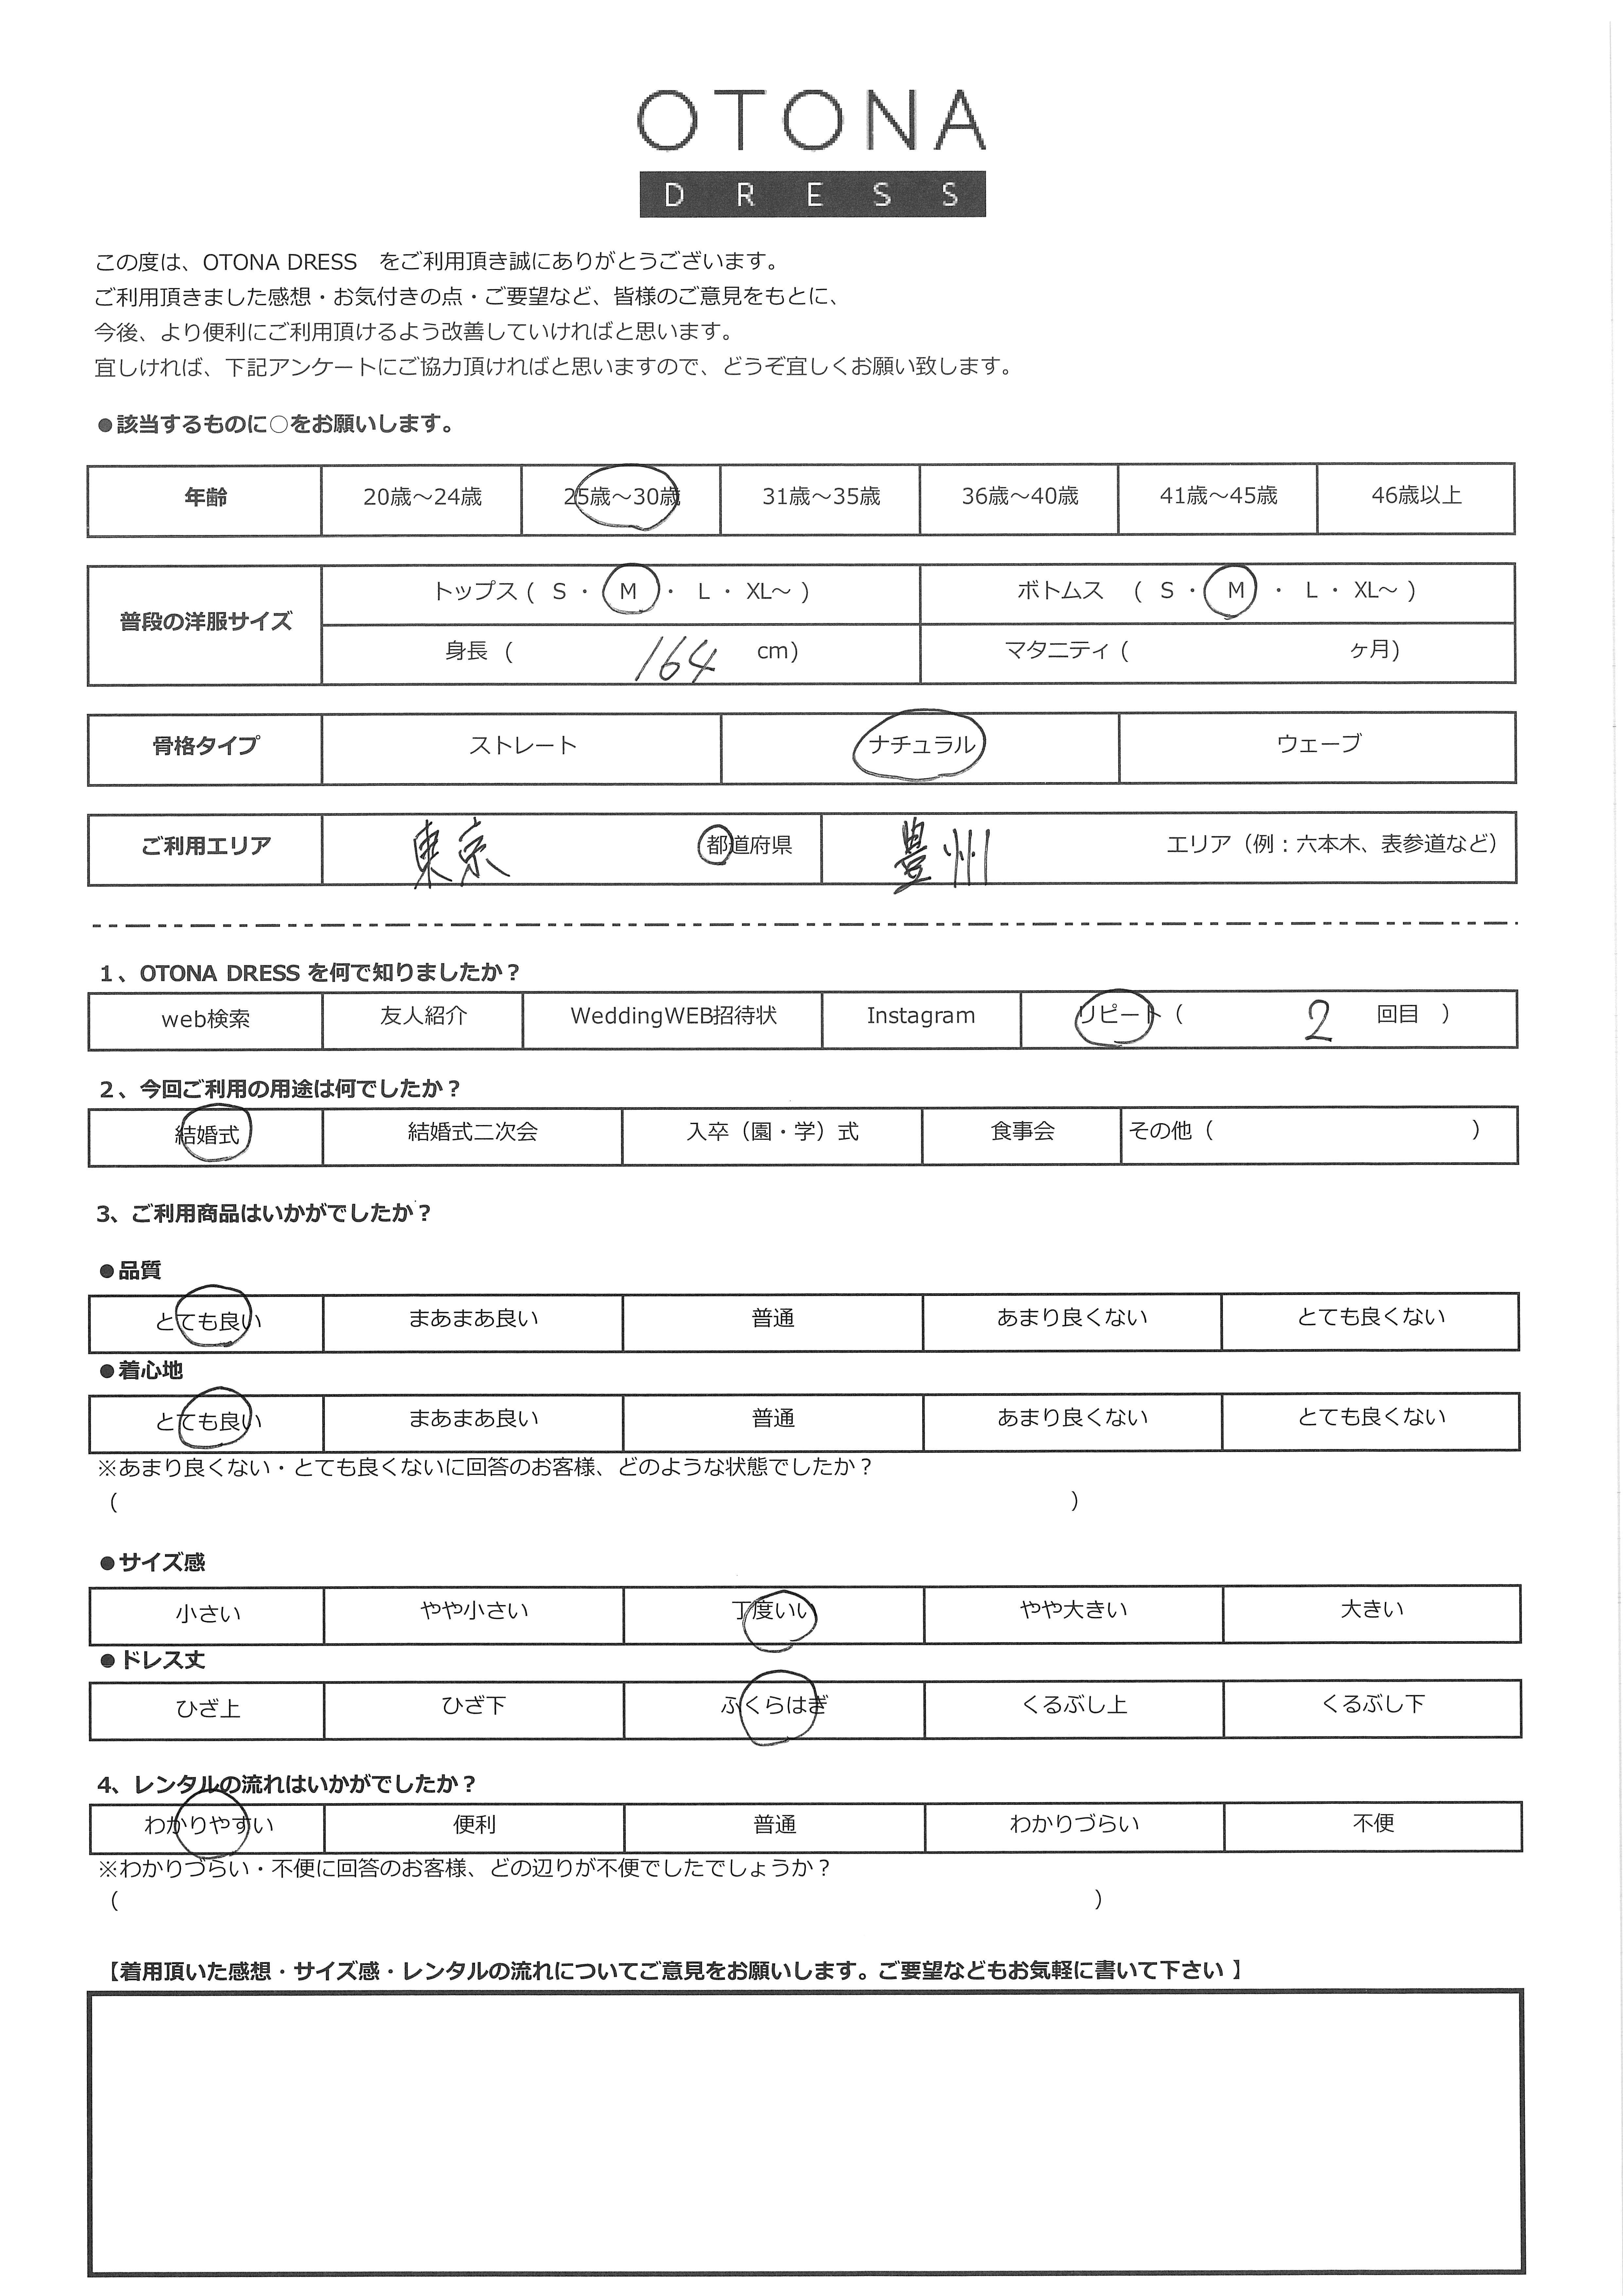 OTONA
DRESS
この度は、OTONA DRESS　をご利用頂き誠にありがとうございます。
ご利用頂きました感想・お気付きの点・ご要望など、皆様のご意見をもとに、
今後、より便利にご利用頂けるよう改善していければと思います。
宜しければ、下記アンケートにご協力頂ければと思いますので、どうぞ宜しくお願い致します。
●該当するものに○をお願いします。
年齢 20歳～24歳 25歳～30歳 31歳～35歳 36歳～40歳 41歳～45歳 46歳以上
普段の洋服サイズ トップス ( S ・ M ・ L ・ XL～ ) ボトムス ( S ・ M ・ L ・ XL～ )
身長 ( 164 cm) マタニティ ( ヶ月)
骨格タイプ ストレート ナチュラル ウェーブ
ご利用エリア 東京 都道府県 豊州 エリア（例：六本木、表参道など）
1、OTONA DRESS を何で知りましたか？
web検索 友人紹介 WeddingWEB招待状 Instagram リピート（ 2 回目 ）
2、今回ご利用の用途は何でしたか？
結婚式 結婚式二次会 入卒（園・学）式 食事会 その他（ ）
3、ご利用商品はいかがでしたか？
●品質
とても良い まあまあ良い 普通 あまり良くない とても良くない
●着心地
とても良い まあまあ良い 普通 あまり良くない とても良くない
※あまり良くない・とても良くないに回答のお客様、どのような状態でしたか？
（ ）
●サイズ感
小さい やや小さい 丁度いい やや大きい 大きい
●ドレス丈
ひざ上 ひざ下 ふくらはぎ くるぶし上 くるぶし下
4、レンタルの流れはいかがでしたか？
わかりやすい 便利 普通 わかりづらい 不便
※わかりづらい・不便に回答のお客様、どの辺りが不便でしたでしょうか？
（ ）
【着用頂いた感想・サイズ感・レンタルの流れについてご意見をお願いします。ご要望などもお気軽に書いて下さい 】